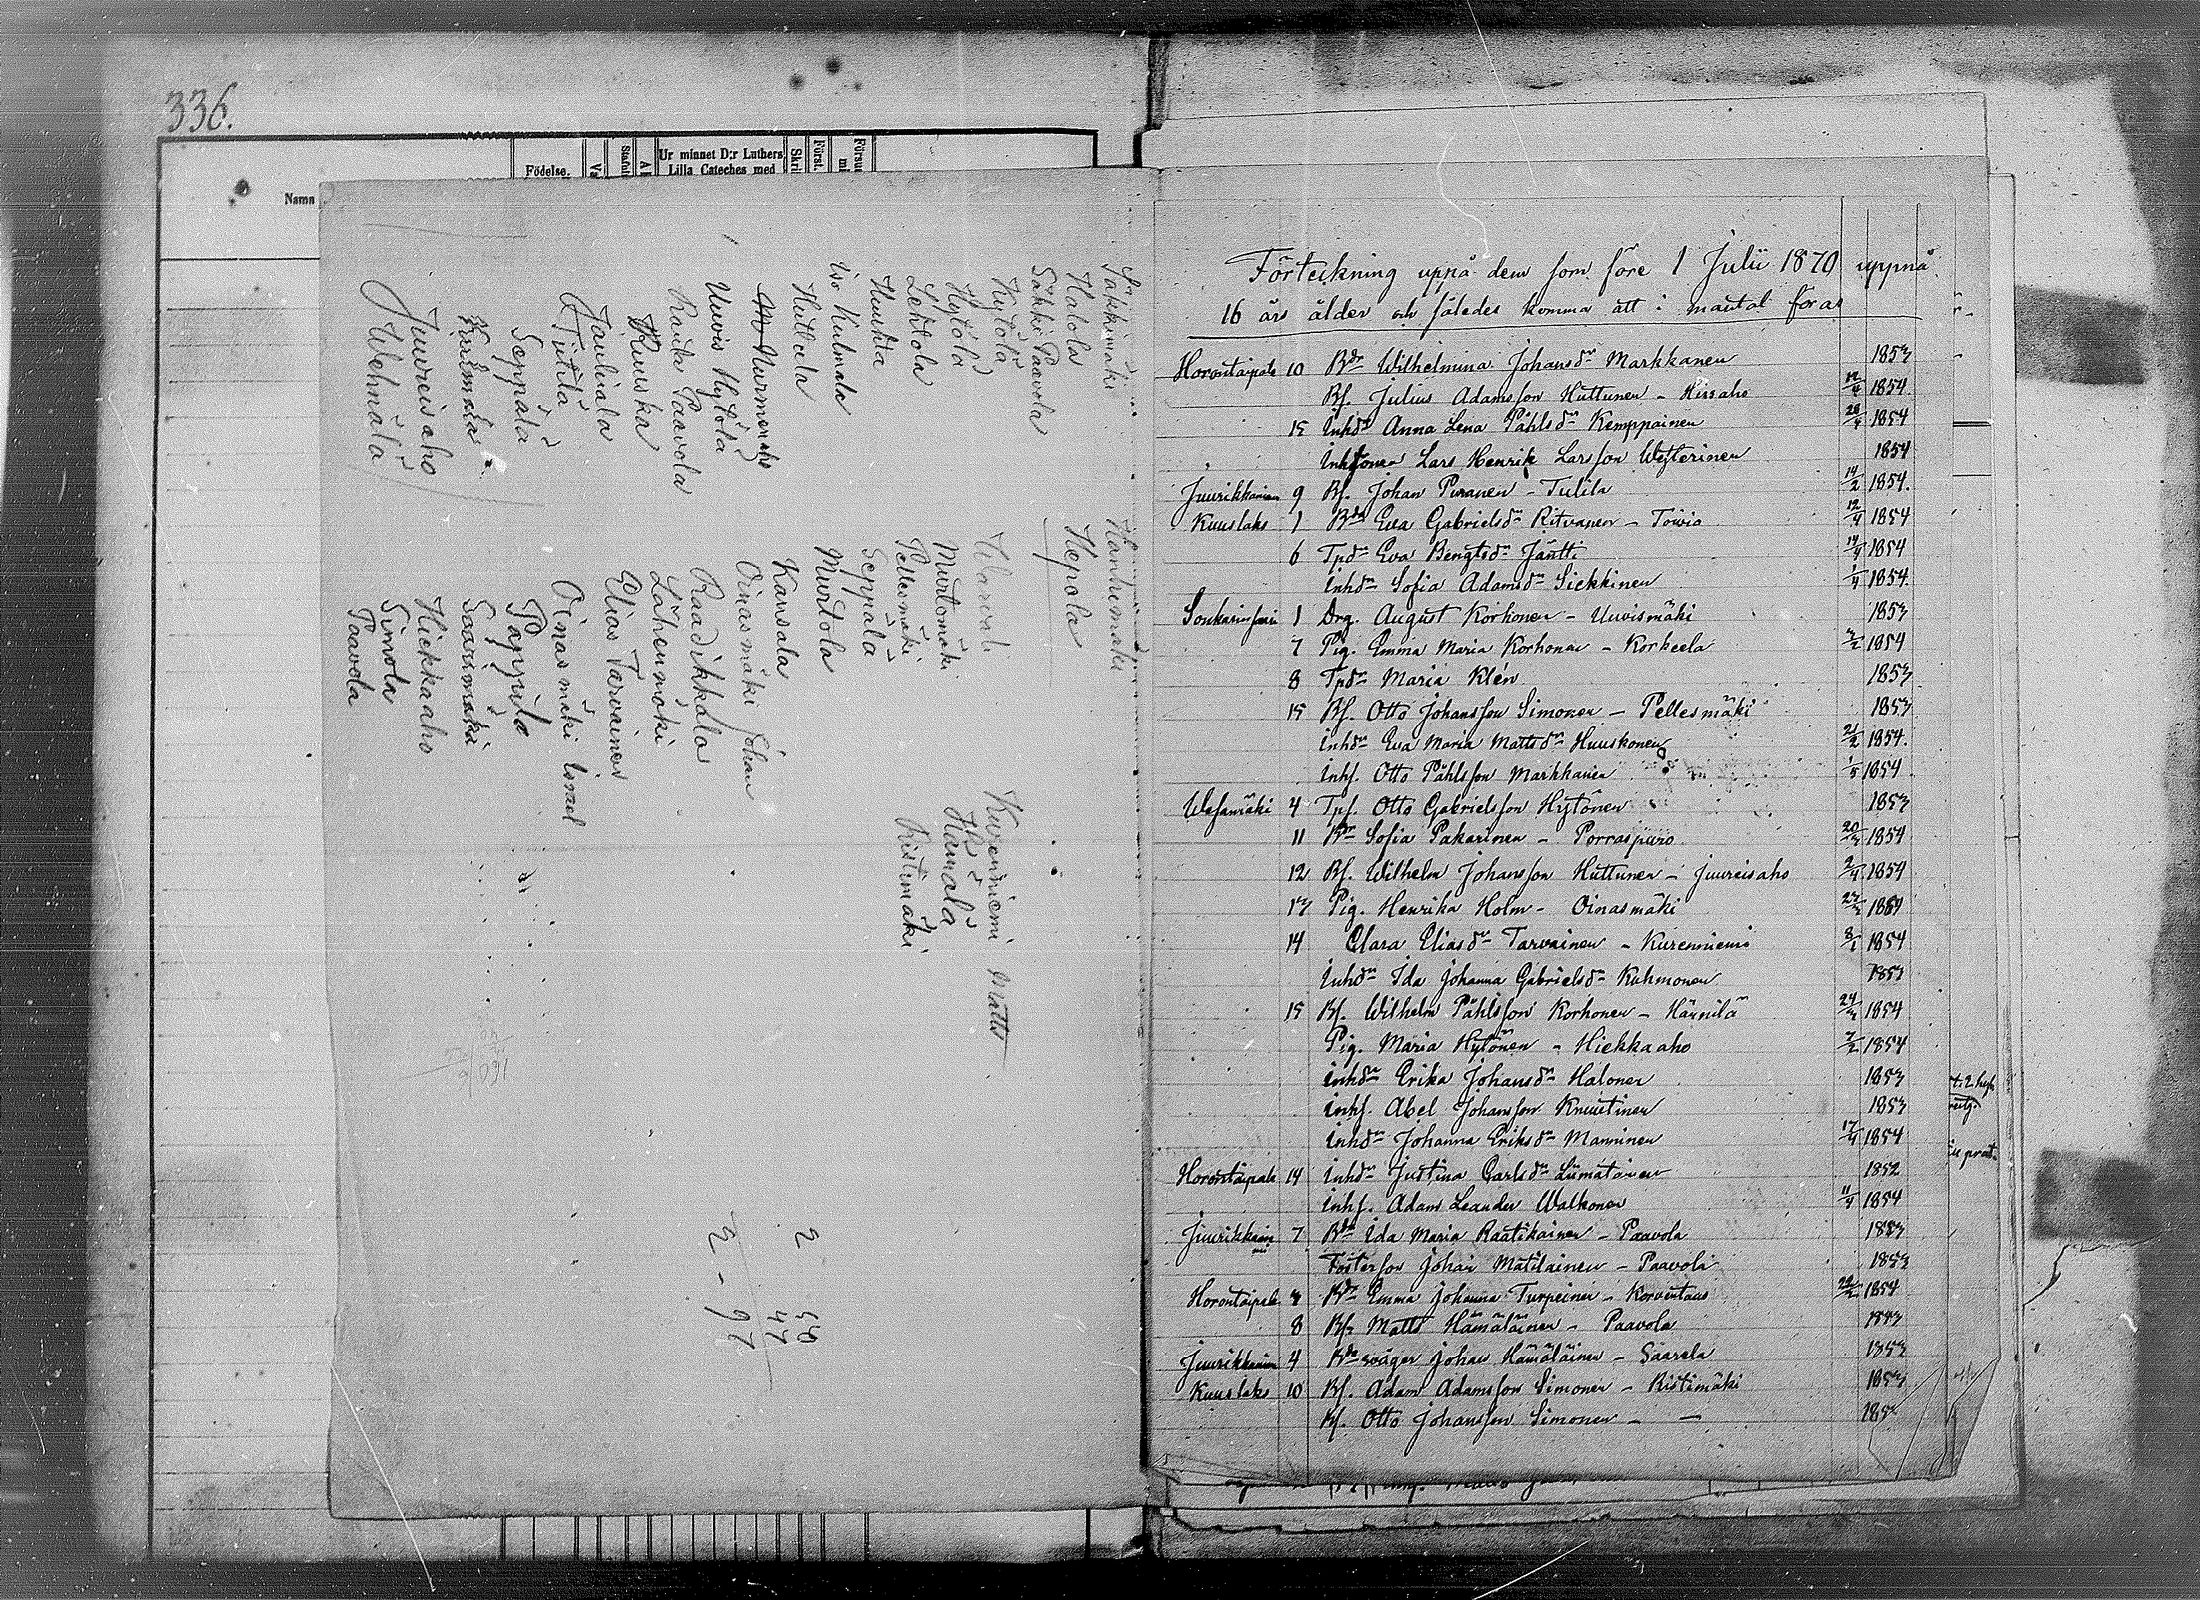 336.
Namn
Födelse.
Ur minnet D:r Luthers
Lilla Cateches med
Först.
Sakkimäki
Halola
Säkki Paavola
Kylölä
Hytölä
Lehtola
Huuhta
Iso Kulmala
Huttula
Nurmenaho
Uuvis Hytölä
Rauka Paavola
Ruuska
Jauliala
Tiitilä
Seppälä
Kiilmälä
Juureisaho
Welmälä
Kankumäki
Hepola
Murtomäki
Pellesmäki
Seppälä
Murtola
Kansala
Oinasmäki Johan
Raadikkala
Lähenmäki
Elias Tarvainen
Oinasmäki Israel
Pappila
Saarimäki
Hiekkaaho
Simola
Paavola
Kurenniemi Matts
Hännälä
Ristimäki
2 50
47
2 - 97
Förteckning uppå dem som före 1 Julii 1870 uppnå
16 års ålder och således komma att i mantal föras
Horontaipale 10 Bdr Wilhelmina Johansdr Markkanen 1853
Bs. Julius Adamsson Huttunen - Hirsaho 1854
15 Inhdr Anna Lena Påhlsdr Kemppainen 1854
Inhsonen Lars Henrik Larsson Westerinen 1854
Juurikkaniemi 9 Bs. Johan Puranen - Tulila 14/2 1854.
Kuuslaks 1 Bdr Eva Gabrielsdr Ritvanen - Toivio 12/4 1854
6 Tpdr Eva Bengtsdr Jäntti 14/4 1854
Inhdr Sofia Adamsdr Siekkinen 1/4 1854.
Soukarinsaari 1 Drg. August Korhonen - Uuvismäki 1853
7 Pig. Emma Maria Korhonen - Korkeela 1854
8 Tpdr Maria Klén 1853
15 Bs. Otto Johansson Simonen - Pellesmäki 1853
Inhdr Eva Maria Mattsdr Huuskonen 21/2 1854.
Inhs. Otto Påhlsson Markkanen 1/5 1854
Wesamäki 4 Tps. Otto Gabrielsson Hytönen 1853
11 Bdr Sofia Pakarinen - Porraspuro 1854
12 Bs. Wilhelm Johansson Huttunen - Juureisaho 2/4 1854
13 Pig. Henrika Holm - Oinasmäki 1854
14 Clara Eliasdr Tarvainen - Kurenniemi 8/1 1854
Inhdr Ida Johanna Gabrielsdr Kuhmonen 1853
15 Bs. Wilhelm Påhlsson Korhonen - Hännilä 1854
Pig. Maria Hytönen - Hiekkaaho 1854
Inhdr Erika Johansdr Halonen 1853
Inhs. Abel Johansson Knuutinen 1853
Inhdr Johanna Eriksdr Manninen 17/4 1854
Horontaipale 14 Inhdr Justina Carlsdr Liimatainen 1852
Inhs. Adam Leander Walkonen 11/4 1854
Juurikkaniemi 7 Bdr Ida Maria Raatikainen - Paavola 1853
Fosterson Johan Matilainen - Paavola 1853
Horontaipale Bdr Emma Johanna Turpeinen - Korventaus 1854
8 Bs. Matts Hämäläinen - Paavola 1853
Juurikkaniemi 4 Bde svåger Johan Hämäläinen - Saarela 1853
Kuuslaks 10 Bs. Adam Adamsson Simonen - Ristimäki 1853
Bs. Otto Johansson Simonen - —